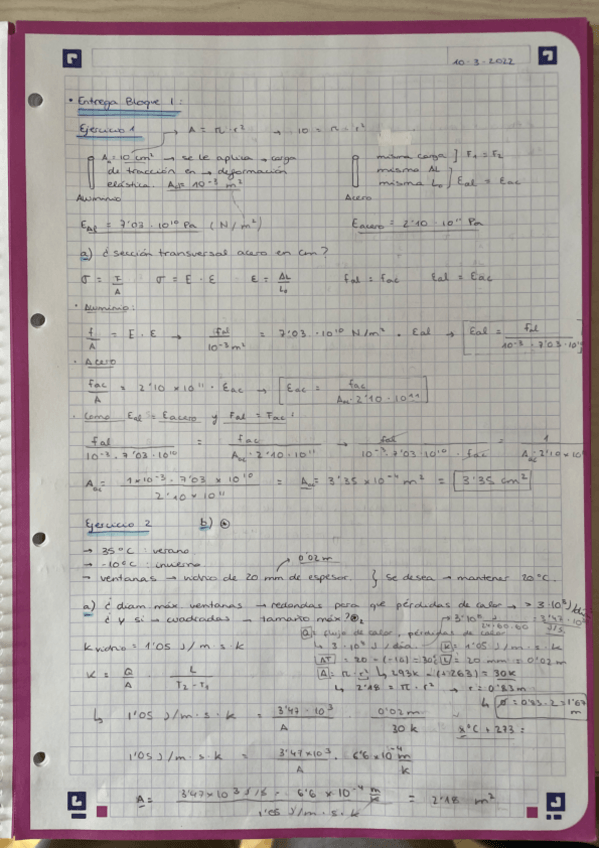 10-3-2022
• Entrega Bloque 1:
Ejercicio 1 → A = π · r² → 10 = π · r²
A₀ = 10 cm² → se le aplica → carga
de tracción en → deformación
elástica. A₀ = 10⁻³ m²
Aluminio
misma carga ] F₁ = F₂
mismo ΔL
misma L₀ } εal = εac
Acero
EAl = 7'03 · 10¹⁰ Pa (N/m²)
Eacero = 2'10 · 10¹¹ Pa
a) ¿sección transversal acero en cm?
σ = F/A σ = E · ε ε = ΔL/L₀ fal = fac εal = εac
• Aluminio:
f/A = E · ε → fal/10⁻³ m² = 7'03 · 10¹⁰ N/m² · εal → εal = fal/10⁻³ · 7'03 · 10¹⁰
• Acero
fac/A = 2'10 × 10¹¹ · εac → εac = fac/Aac · 2'10 · 10¹¹
• Como εal = εacero y Fal = Fac:
fal/10⁻³ · 7'03 · 10¹⁰ = fac/Aac · 2'10 · 10¹¹ → fal/10⁻³ · 7'03 · 10¹⁰ · fac = 1/Aac · 2'10 × 10¹¹
Aac = 1 × 10⁻³ · 7'03 × 10¹⁰/2'10 × 10¹¹ = Aac = 3'35 × 10⁻⁴ m² = 3'35 cm²
Ejercicio 2 b)
→ 35°C : verano
→ -10°C : invierno
→ ventanas → vidrio de 20 mm de espesor. } se desea → mantener 20°C.
0'02 m
a) ¿diam máx ventanas → redondas para que pérdidas de calor → > 3·10⁸ J/día
¿y si → cuadradas → tamaño máx?
3·10⁸ J/24·60·60 = 3'47 · 10³ J/s
Q = flujo de calor, pérdidas de calor
↳ 3 · 10⁸ J/día. K = 1'05 J/m · s · k
Kvidrio = 1'05 J/m · s · k
ΔT = 20 - (-10) = 30°C L = 20 mm = 0'02 m
A = π · r² ↳ 293k - (+263) = 30k
K = Q/A · L/T₂ - T₁
↳ 2'18 = π · r² → r = 0'83 m
↳ ø = 0'83 · 2 = 1'67 m
↳ 1'05 J/m · s · k = 3'47 · 10³/A · 0'02 m/30 k
x°C + 273 =
1'05 J/m · s · k = 3'47 × 10³/A · 6'6 × 10⁻⁴ m/k
A = 3'47 × 10³ J/s · 6'6 × 10⁻⁴ m/k/1'05 J/m · s · k = 2'18 m²